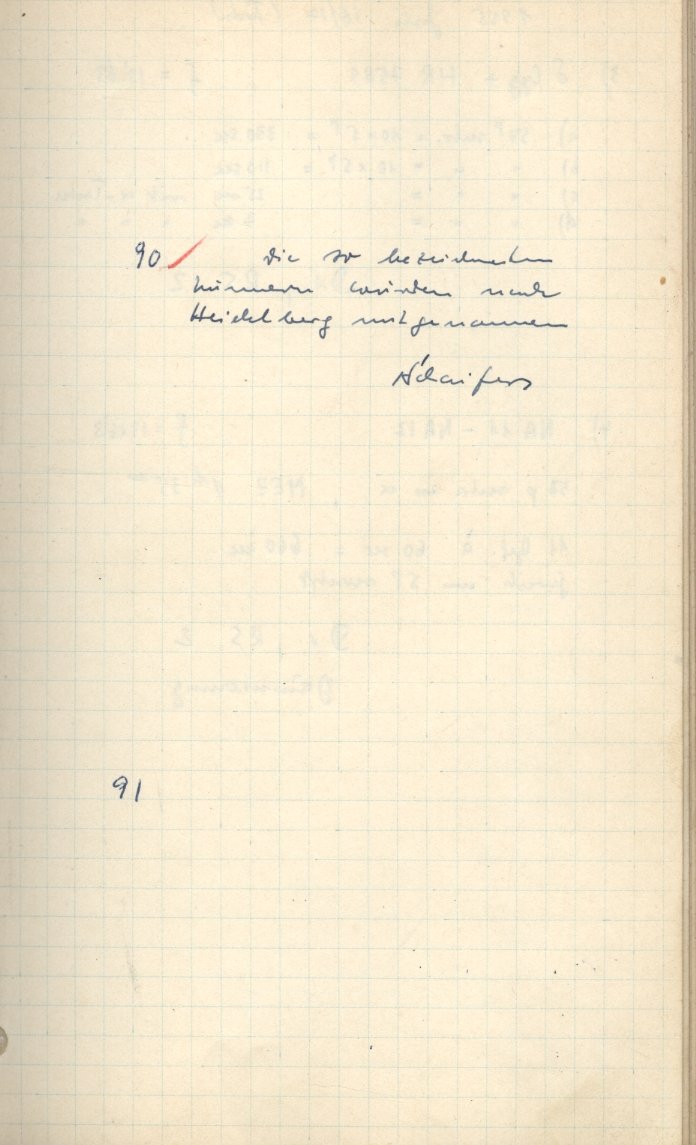 90 die so bezeichneten
Nummern wurden nach
Heidelberg mitgenommen
Schaifers
91